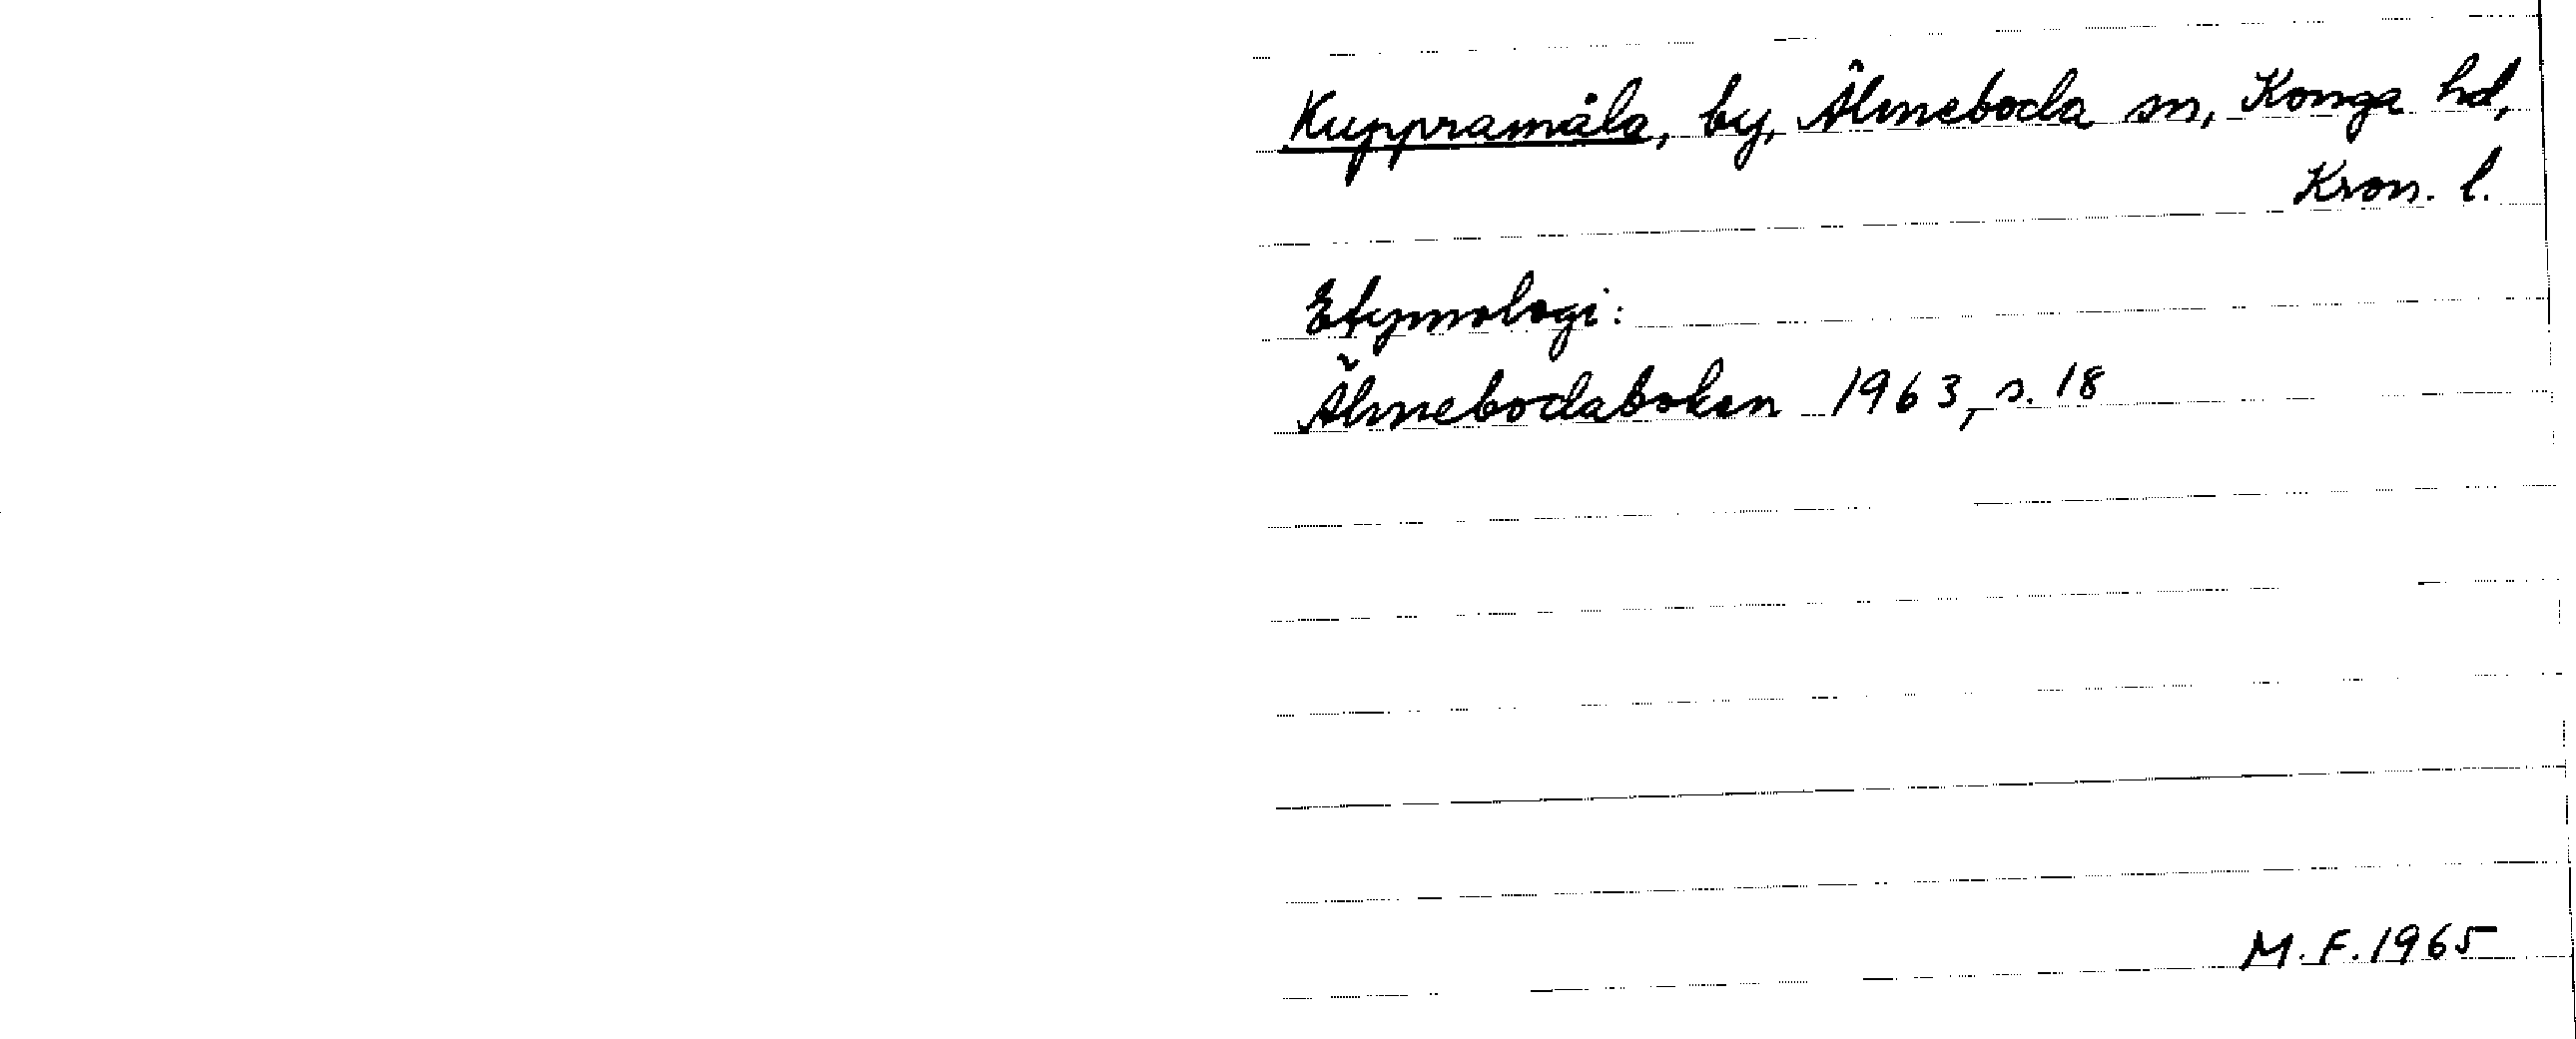 Kuppramåla, by, Älmeboda sn, Konga hd,
Kron. l.
Etymologi:
Älmebodaboken 1963, s. 18
M.F. 1965